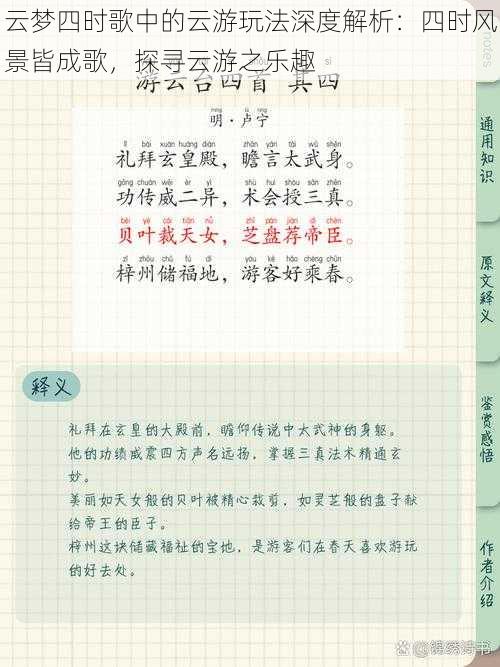 云梦四时歌中的云游玩法深度解析：四时风
景皆成歌，探寻云游之乐趣
游云台四首 其四
明·卢宁
lǐ bài xuán huáng diàn zhān yán tài wǔ shēn
礼拜玄皇殿，瞻言太武身。
gōng chuán wēi èr yì shù huì shòu sān zhēn
功传威二异，术会授三真。
bèi yè cái tiān nǚ zhī pán jiàn dì chén
贝叶裁天女，芝盘荐帝臣。
zǐ zhōu chǔ fú dì yóu kè hào chéng chūn
梓州储福地，游客好乘春。
释义
礼拜在玄皇的大殿前，瞻仰传说中太武神的身躯。
他的功绩威震四方声名远扬，掌握三真法术精通玄
妙。
美丽如天女般的贝叶被精心裁剪，如灵芝般的盘子献
给帝王的臣子。
梓州这块储藏福祉的宝地，是游客们在春天喜欢游玩
的好去处。
notes
通用知识
原文释义
鉴赏感悟
作者介绍
锦绣诗书